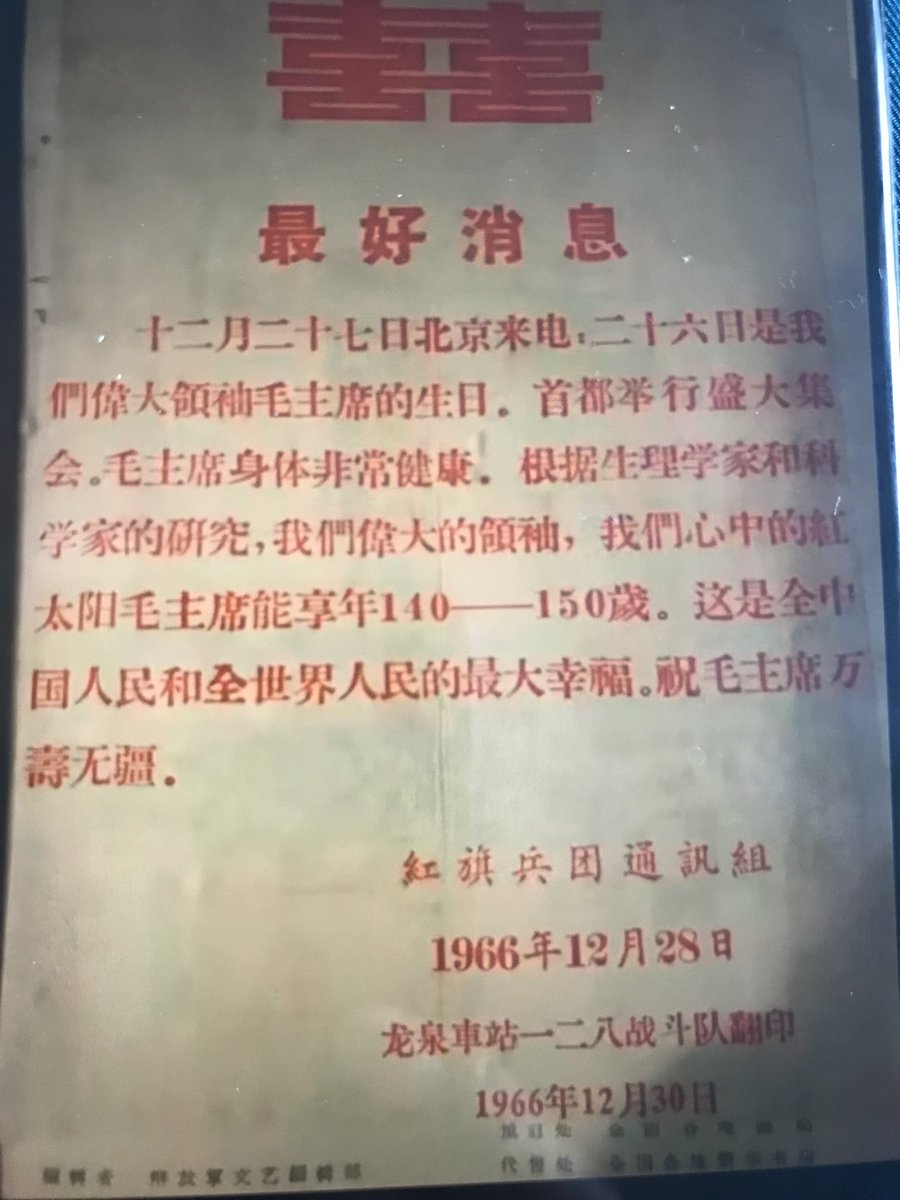 囍
最好消息
十二月二十七日北京来电:二十六日是我
們偉大領袖毛主席的生日。首都举行盛大集
会。毛主席身体非常健康。根据生理学家和科
学家的研究,我們偉大的領袖,我們心中的紅
太阳毛主席能享年140——150歲。这是全中
国人民和全世界人民的最大幸福。祝毛主席万
壽无疆。
紅旗兵团通訊組
1966年12月28日
龙泉車站一二八战斗队翻印
1966年12月30日
編輯者 解放軍文艺編輯部
代售处 全国各地新华书店